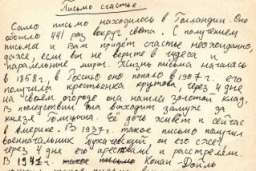 Письмо счастье.
Само письмо находилось в Голландии. Оно
обошло 441 раз вокруг света. С получением
письма к Вам придёт счастье неожиданно,
даже, если вы не верите в чудеса и
параллельные миры. Жизнь письма началась
в 1858 г. в Россию оно попало в 1907 г. его
получила крестьянка Крутова, через 4 дня
на своём огороде она нашла золотой клад.
В последствии она выходит замуж за
князя Голицына. Её дочь живёт и сейчас
в Америке. В 1937 г. такое письмо получил
военначальник Тухачевский он его сжёг
через 4 дня его арестовали и расстреляли.
В 1921 г. такое письмо Конан-Дойло